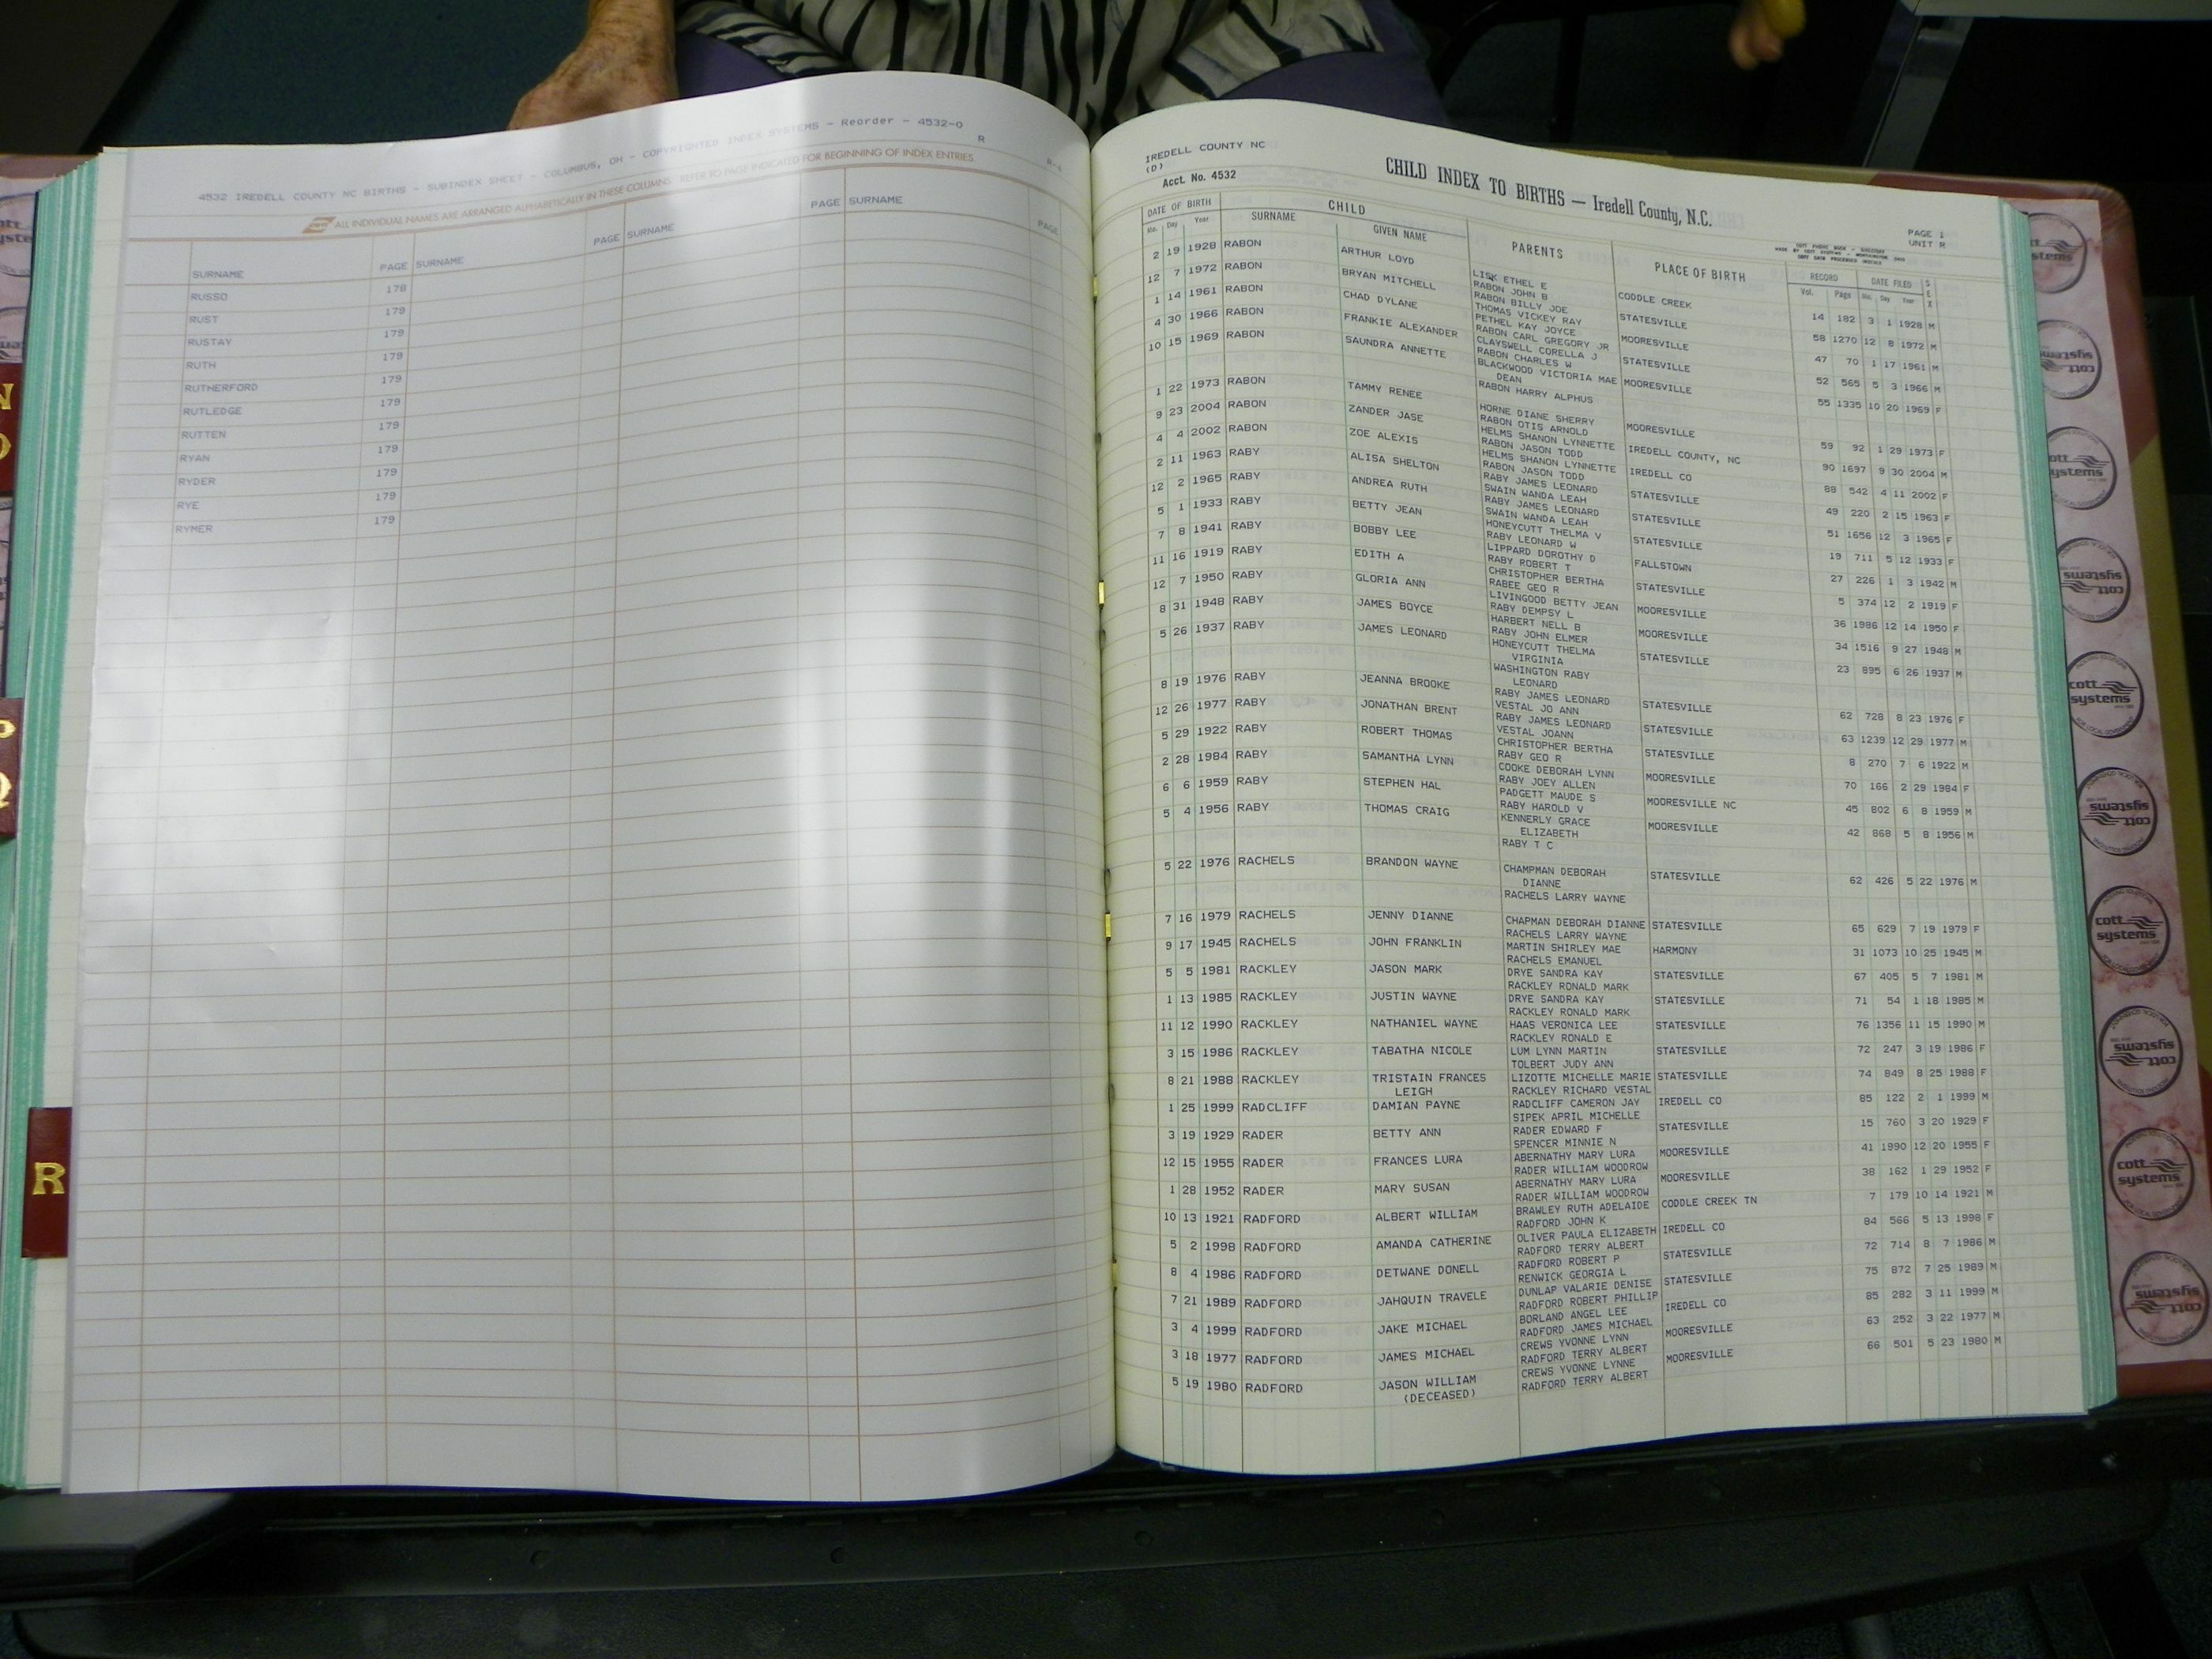 4532 IREDELL COUNTY NC BIRTHS - SUBINDEX SHEET - COLUMBUS, OH - COPYRIGHTED INDEX SYSTEMS - Reorder - 4532-0
R
R-4
ALL INDIVIDUAL NAMES ARE ARRANGED ALPHABETICALLY IN THESE COLUMNS REFER TO PAGE INDICATED FOR BEGINNING OF INDEX ENTRIES
SURNAME PAGE SURNAME PAGE SURNAME PAGE SURNAME PAGE
RUSSO 178
RUST 179
RUSTAY 179
RUTH 179
RUTHERFORD 179
RUTLEDGE 179
RUTTEN 179
RYAN 179
RYDER 179
RYE 179
RYMER 179
R
IREDELL COUNTY NC
(D)
Acct. No. 4532
CHILD INDEX TO BIRTHS — Iredell County, N.C.
PAGE 1
UNIT R
DATE OF BIRTH CHILD PARENTS PLACE OF BIRTH RECORD DATE FILED SEX
Mo. Day Year SURNAME GIVEN NAME Vol. Page Mo. Day Year
2 19 1928 RABON ARTHUR LOYD LISK ETHEL E CODDLE CREEK 14 182 3 1 1928 M
RABON JOHN B
12 7 1972 RABON BRYAN MITCHELL RABON BILLY JOE STATESVILLE 58 1270 12 8 1972 M
THOMAS VICKEY RAY
1 14 1961 RABON CHAD DYLANE PETHEL KAY JOYCE MOORESVILLE 47 70 1 17 1961 M
RABON CARL GREGORY JR
4 30 1966 RABON FRANKIE ALEXANDER CLAYSWELL CORELLA J STATESVILLE 52 565 5 3 1966 M
RABON CHARLES W
10 15 1969 RABON SAUNDRA ANNETTE BLACKWOOD VICTORIA MAE MOORESVILLE 55 1335 10 20 1969 F
DEAN
RABON HARRY ALPHUS
1 22 1973 RABON TAMMY RENEE HORNE DIANE SHERRY MOORESVILLE 59 92 1 29 1973 F
RABON OTIS ARNOLD
9 23 2004 RABON ZANDER JASE HELMS SHANON LYNNETTE IREDELL COUNTY, NC 90 1697 9 30 2004 M
RABON JASON TODD
4 4 2002 RABON ZOE ALEXIS HELMS SHANON LYNNETTE IREDELL CO 88 542 4 11 2002 F
RABON JASON TODD
2 11 1963 RABY ALISA SHELTON RABY JAMES LEONARD STATESVILLE 49 220 2 15 1963 F
SWAIN WANDA LEAH
12 2 1965 RABY ANDREA RUTH RABY JAMES LEONARD STATESVILLE 51 1656 12 3 1965 F
SWAIN WANDA LEAH
5 1 1933 RABY BETTY JEAN HONEYCUTT THELMA V STATESVILLE 19 711 5 12 1933 F
RABY LEONARD W
7 8 1941 RABY BOBBY LEE LIPPARD DOROTHY D FALLSTOWN 27 226 1 3 1942 M
RABY ROBERT T
11 16 1919 RABY EDITH A CHRISTOPHER BERTHA STATESVILLE 5 374 12 2 1919 F
RABEE GEO R
12 7 1950 RABY GLORIA ANN LIVINGOOD BETTY JEAN MOORESVILLE 36 1986 12 14 1950 F
RABY DEMPSY L
8 31 1948 RABY JAMES BOYCE HARBERT NELL B MOORESVILLE 34 1516 9 27 1948 M
RABY JOHN ELMER
5 26 1937 RABY JAMES LEONARD HONEYCUTT THELMA STATESVILLE 23 895 6 26 1937 M
VIRGINIA
WASHINGTON RABY
LEONARD
8 19 1976 RABY JEANNA BROOKE RABY JAMES LEONARD STATESVILLE 62 728 8 23 1976 F
VESTAL JO ANN
12 26 1977 RABY JONATHAN BRENT RABY JAMES LEONARD STATESVILLE 63 1239 12 29 1977 M
VESTAL JOANN
5 29 1922 RABY ROBERT THOMAS CHRISTOPHER BERTHA STATESVILLE 8 270 7 6 1922 M
RABY GEO R
2 28 1984 RABY SAMANTHA LYNN COOKE DEBORAH LYNN MOORESVILLE 70 166 2 29 1984 F
RABY JOEY ALLEN
6 6 1959 RABY STEPHEN HAL PADGETT MAUDE S MOORESVILLE NC 45 802 6 8 1959 M
RABY HAROLD V
5 4 1956 RABY THOMAS CRAIG KENNERLY GRACE MOORESVILLE 42 868 5 8 1956 M
ELIZABETH
RABY T C
5 22 1976 RACHELS BRANDON WAYNE CHAMPMAN DEBORAH STATESVILLE 62 426 5 22 1976 M
DIANNE
RACHELS LARRY WAYNE
7 16 1979 RACHELS JENNY DIANNE CHAPMAN DEBORAH DIANNE STATESVILLE 65 629 7 19 1979 F
RACHELS LARRY WAYNE
9 17 1945 RACHELS JOHN FRANKLIN MARTIN SHIRLEY MAE HARMONY 31 1073 10 25 1945 M
RACHELS EMANUEL
5 5 1981 RACKLEY JASON MARK DRYE SANDRA KAY STATESVILLE 67 405 5 7 1981 M
RACKLEY RONALD MARK
1 13 1985 RACKLEY JUSTIN WAYNE DRYE SANDRA KAY STATESVILLE 71 54 1 18 1985 M
RACKLEY RONALD MARK
11 12 1990 RACKLEY NATHANIEL WAYNE HAAS VERONICA LEE STATESVILLE 76 1356 11 15 1990 M
RACKLEY RONALD E
3 15 1986 RACKLEY TABATHA NICOLE LUM LYNN MARTIN STATESVILLE 72 247 3 19 1986 F
TOLBERT JUDY ANN
8 21 1988 RACKLEY TRISTAIN FRANCES LIZOTTE MICHELLE MARIE STATESVILLE 74 849 8 25 1988 F
LEIGH RACKLEY RICHARD VESTAL
1 25 1999 RADCLIFF DAMIAN PAYNE RADCLIFF CAMERON JAY IREDELL CO 85 122 2 1 1999 M
SIPEK APRIL MICHELLE
3 19 1929 RADER BETTY ANN RADER EDWARD F STATESVILLE 15 760 3 20 1929 F
SPENCER MINNIE N
12 15 1955 RADER FRANCES LURA ABERNATHY MARY LURA MOORESVILLE 41 1990 12 20 1955 F
RADER WILLIAM WOODROW
1 28 1952 RADER MARY SUSAN ABERNATHY MARY LURA MOORESVILLE 38 162 1 29 1952 F
RADER WILLIAM WOODROW
10 13 1921 RADFORD ALBERT WILLIAM BRAWLEY RUTH ADELAIDE CODDLE CREEK TN 7 179 10 14 1921 M
RADFORD JOHN K
5 2 1998 RADFORD AMANDA CATHERINE OLIVER PAULA ELIZABETH IREDELL CO 84 566 5 13 1998 F
RADFORD TERRY ALBERT
8 4 1986 RADFORD DETWANE DONELL RADFORD ROBERT P STATESVILLE 72 714 8 7 1986 M
RENWICK GEORGIA L
7 21 1989 RADFORD JAHQUIN TRAVELE DUNLAP VALARIE DENISE STATESVILLE 75 872 7 25 1989 M
RADFORD ROBERT PHILLIP
3 4 1999 RADFORD JAKE MICHAEL BORLAND ANGEL LEE IREDELL CO 85 282 3 11 1999 M
RADFORD JAMES MICHAEL
3 18 1977 RADFORD JAMES MICHAEL CREWS YVONNE LYNN MOORESVILLE 63 252 3 22 1977 M
RADFORD TERRY ALBERT
5 19 1980 RADFORD JASON WILLIAM CREWS YVONNE LYNNE MOORESVILLE 66 501 5 23 1980 M
(DECEASED) RADFORD TERRY ALBERT
cott systems
cott systems
cott systems
cott systems
cott systems
cott systems
cott systems
cott systems
cott systems
cott systems